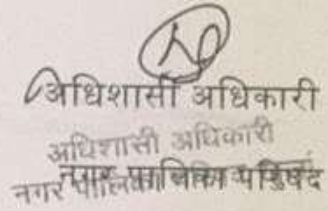 अधिशासी अधिकारी
अधिशासी अधिकारी
नगर पालिका परिषद